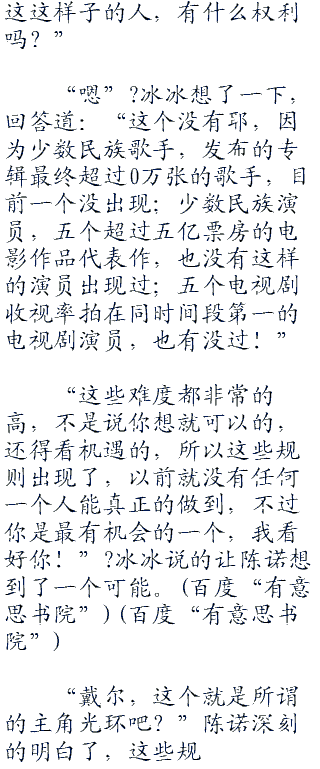 这这样子的人，有什么权利
吗？”
“嗯”?冰冰想了一下，
回答道：“这个没有耶，因
为少数民族歌手，发布的专
辑最终超过0万张的歌手，目
前一个没出现；少数民族演
员，五个超过五亿票房的电
影作品代表作，也没有这样
的演员出现过；五个电视剧
收视率拍在同时间段第一的
电视剧演员，也有没过！”
“这些难度都非常的
高，不是说你想就可以的，
还得看机遇的，所以这些规
则出现了，以前就没有任何
一个人能真正的做到，不过
你是最有机会的一个，我看
好你！”?冰冰说的让陈诺想
到了一个可能。(百度“有意
思书院”)(百度“有意思书
院”)
“戴尔，这个就是所谓
的主角光环吧？”陈诺深刻
的明白了，这些规